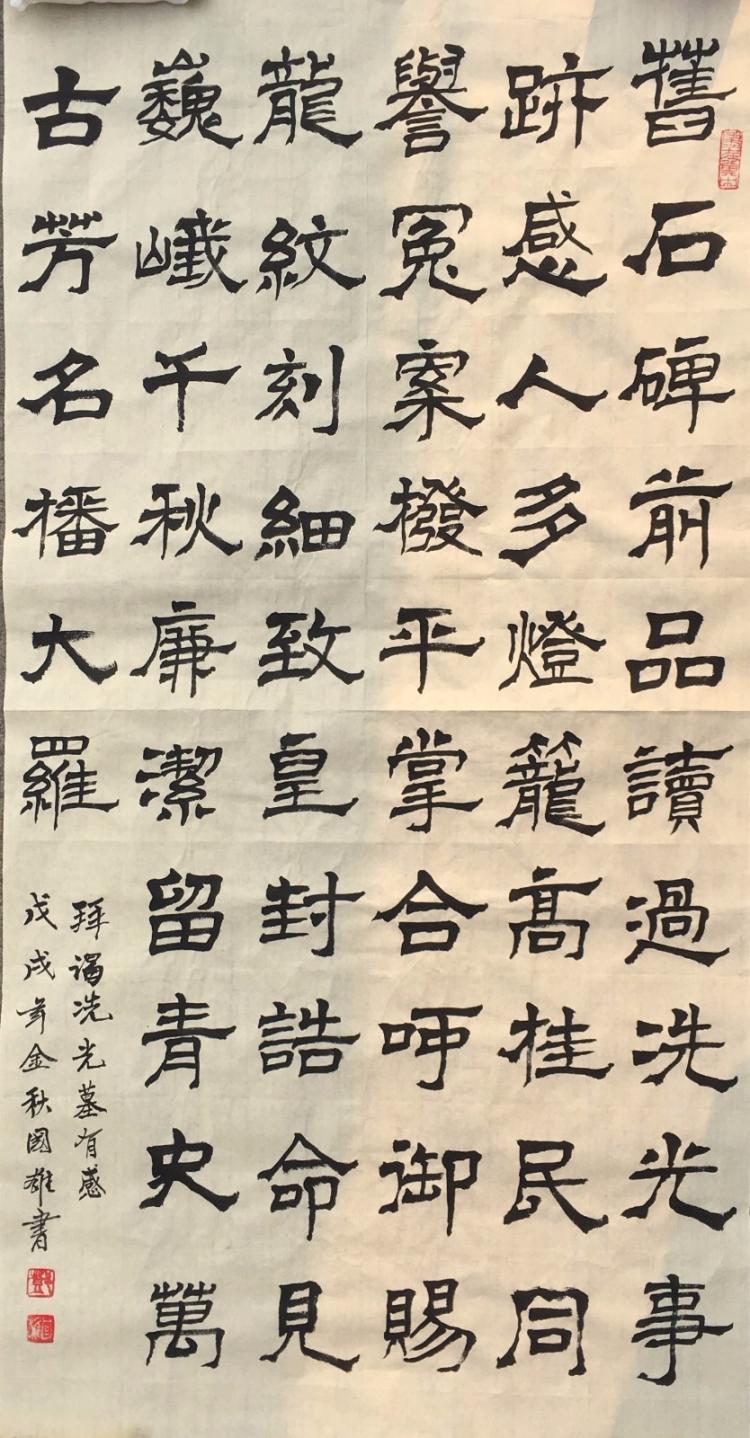 舊石碑前品讀過冼光事
跡感人多燈籠高挂民同
譽冤案撥平掌合呼御賜
龍紋刻細致皇封誥命見
巍峨千秋廉潔留青史萬
古芳名播大羅
拜謁冼光墓有感
戊戌年金秋國雄書